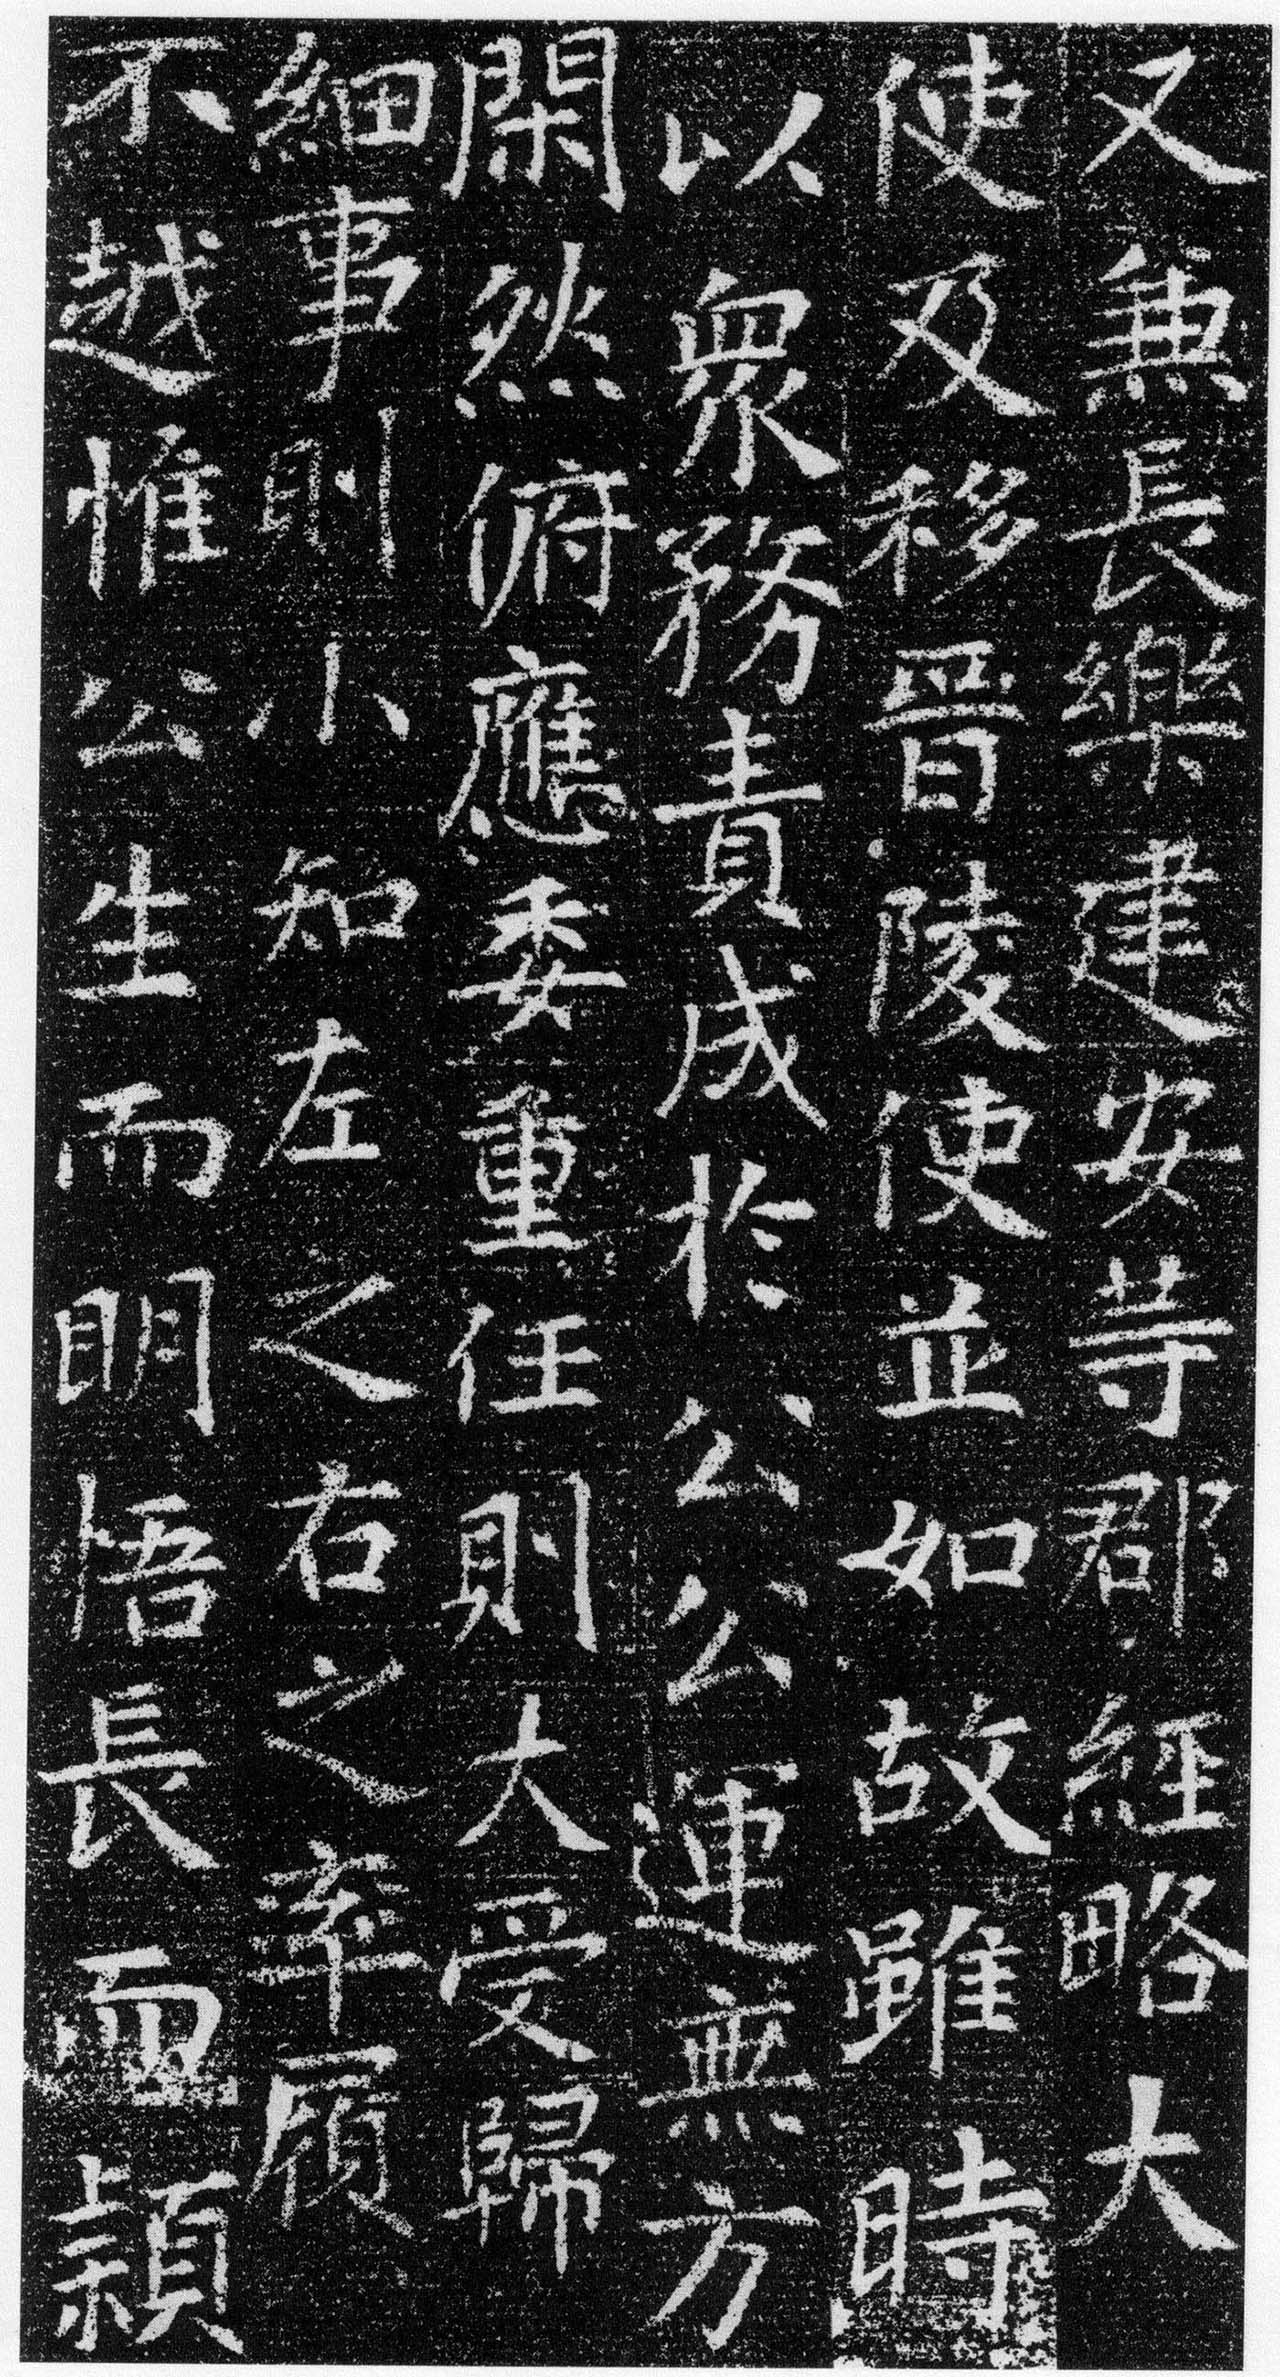 又兼長樂建安等郡經略大
使及移晉陵使並如故雖時
以衆務責成於公公運無方
閑然俯應委重任則大受歸
細事則小知左之右之率履
不越惟公生而明悟長而頴